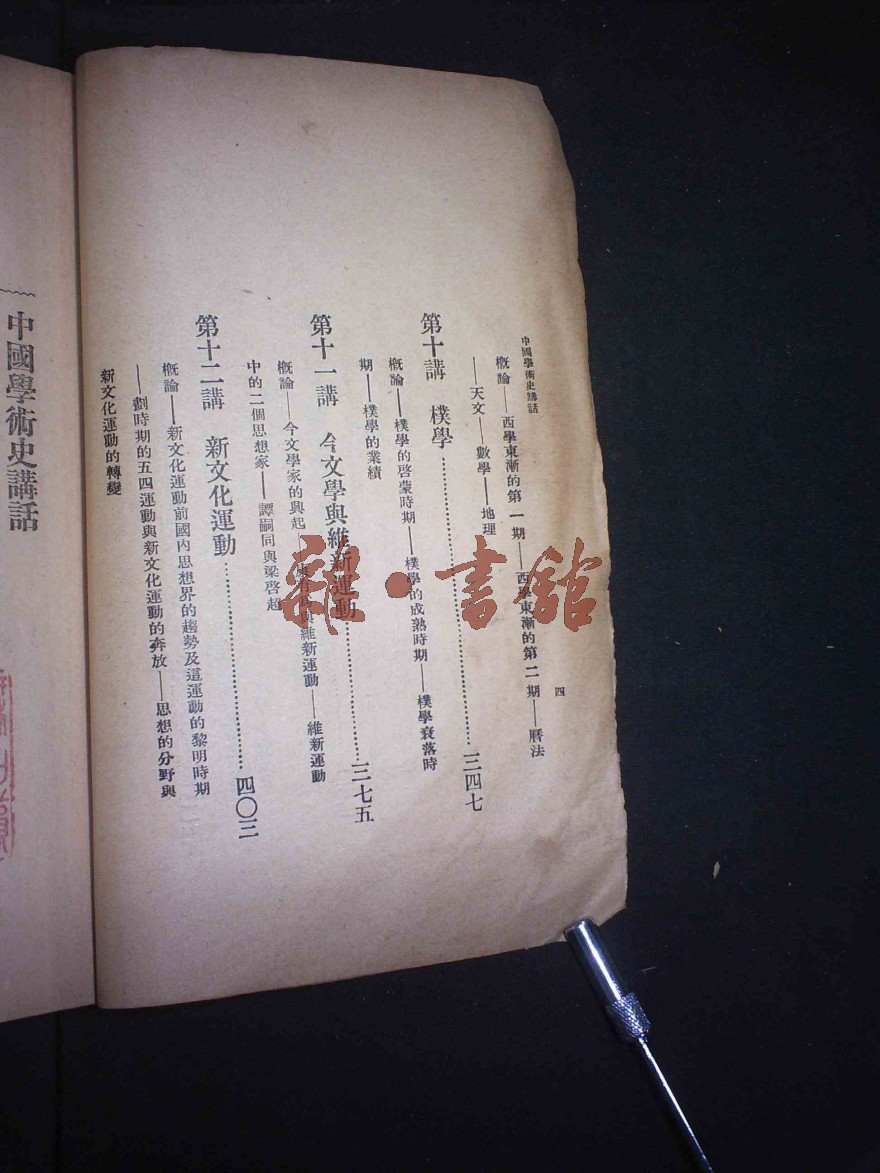 中國學術史講話
四
概論——西學東漸的第一期——西學東漸的第二期——曆法
——天文——數學——地理
第十講　樸學……三四七
概論——樸學的啓蒙時期——樸學的成熟時期——樸學衰落時
期——樸學的業績
第十一講　今文學與維新運動……三七五
概論——今文學家的興起——與維新運動——維新運動
中的二個思想家——譚嗣同與梁啓超
第十二講　新文化運動……四〇三
概論——新文化運動前國內思想界的趨勢及這運動的黎明時期
——劃時期的五四運動與新文化運動的奔放——思想的分野與
新文化運動的轉變
中國學術史講話
雜·書館